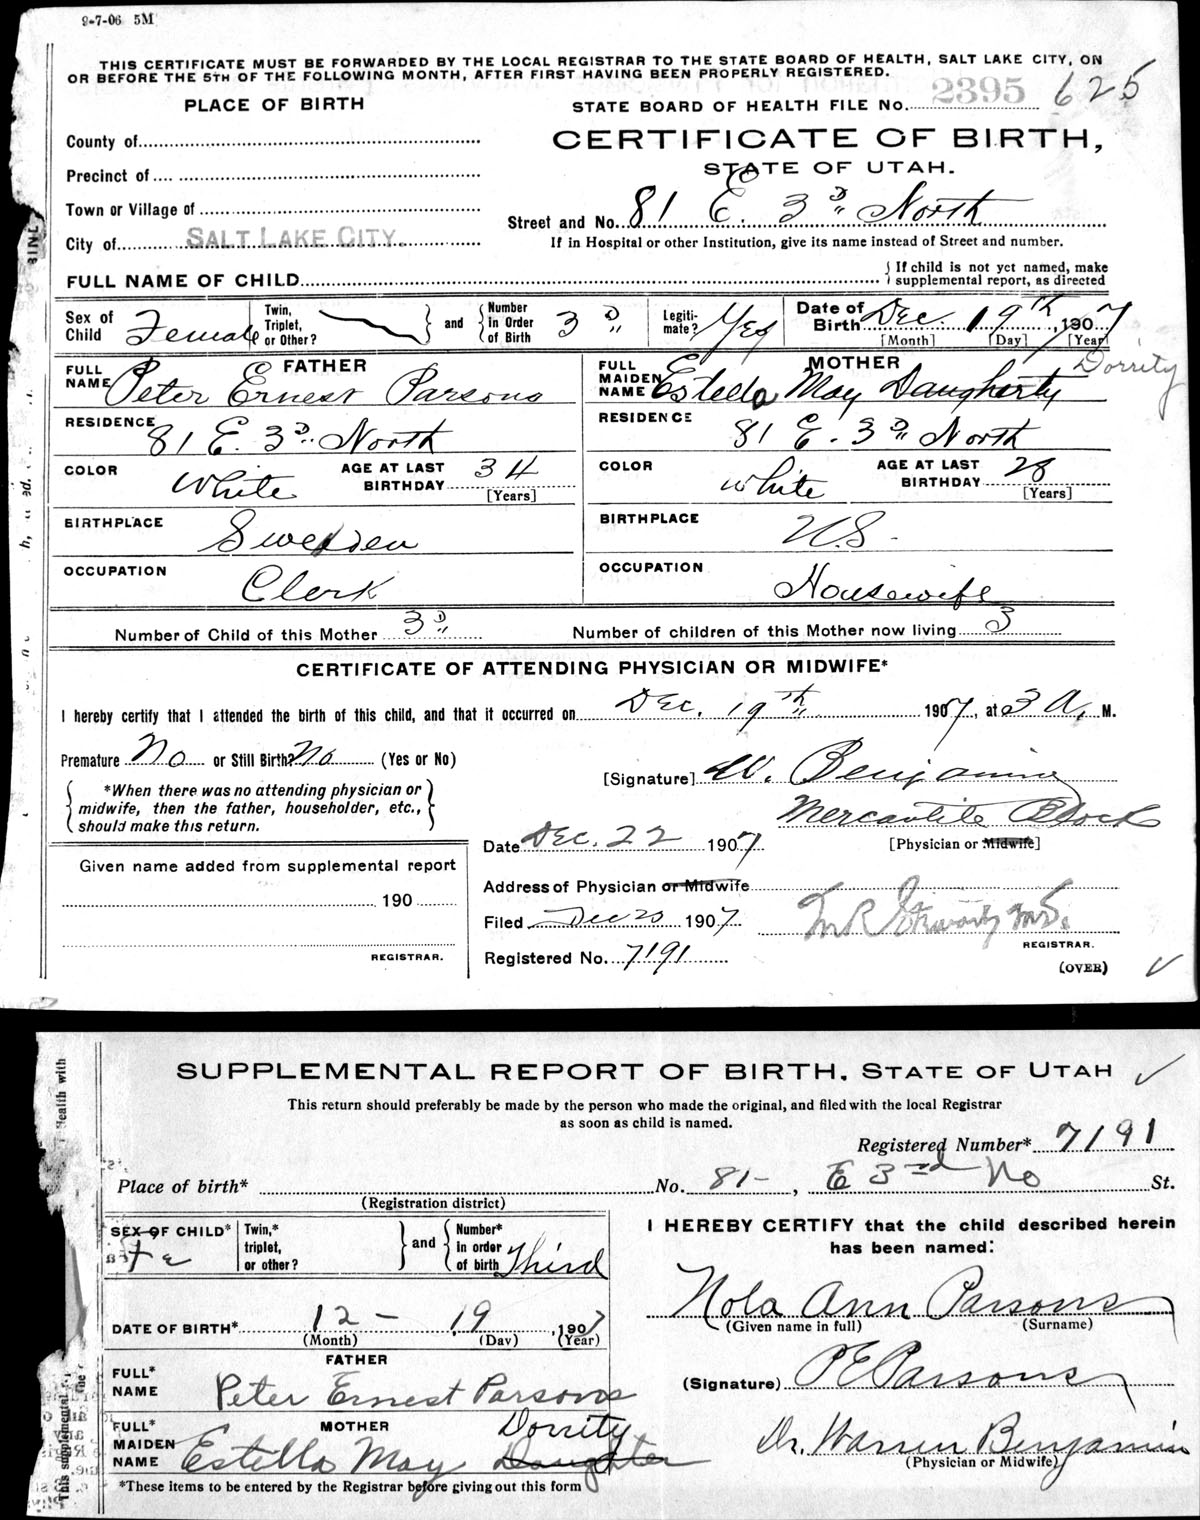 9-7-06 5M
THIS CERTIFICATE MUST BE FORWARDED BY THE LOCAL REGISTRAR TO THE STATE BOARD OF HEALTH, SALT LAKE CITY, ON
OR BEFORE THE 5TH OF THE FOLLOWING MONTH, AFTER FIRST HAVING BEEN PROPERLY REGISTERED.
PLACE OF BIRTH
STATE BOARD OF HEALTH FILE No. 2395 625
County of
CERTIFICATE OF BIRTH,
Precinct of
STATE OF UTAH.
Town or Village of
Street and No. 81 E. 3D North
City of SALT LAKE CITY.
If in Hospital or other Institution, give its name instead of Street and number.
FULL NAME OF CHILD
If child is not yet named, make
supplemental report, as directed
Sex of Child Female
Twin, Triplet, or Other?
and
Number in Order of Birth 3D
Legiti-mate? Yes
Date of Birth Dec. 19th, 1907
[Month] [Day] [Year]
FATHER
FULL NAME Peter Ernest Parsons
MOTHER
FULL MAIDEN NAME Estella May Daugherty Dorrity
RESIDENCE 81 E. 3D North
RESIDENCE 81 E. 3D North
COLOR White
AGE AT LAST BIRTHDAY 34 [Years]
COLOR White
AGE AT LAST BIRTHDAY 28 [Years]
BIRTHPLACE Sweden
BIRTHPLACE U.S.
OCCUPATION Clerk
OCCUPATION Housewife
Number of Child of this Mother 3D
Number of children of this Mother now living 3
CERTIFICATE OF ATTENDING PHYSICIAN OR MIDWIFE*
I hereby certify that I attended the birth of this child, and that it occurred on Dec. 19th 1907, at 3 A. M.
Premature No or Still Birth? No (Yes or No)
[Signature] W. Benjamin
*When there was no attending physician or
midwife, then the father, householder, etc.,
should make this return.
Mercantile Block
Date Dec. 22 1907
[Physician or Midwife]
Given name added from supplemental report
190
REGISTRAR.
Address of Physician or Midwife
Filed Dec 1907
M.D.
REGISTRAR.
Registered No. 7191
(OVER)
Health with
SUPPLEMENTAL REPORT OF BIRTH, STATE OF UTAH
This return should preferably be made by the person who made the original, and filed with the local Registrar
as soon as child is named.
Registered Number* 7191
Place of birth* No. 81-, E 3rd No St.
(Registration district)
SEX OF CHILD* Fe
Twin,* triplet, or other?
and
Number* in order of birth Third
I HEREBY CERTIFY that the child described herein
has been named:
Nola Ann Parsons
(Given name in full) (Surname)
DATE OF BIRTH* 12 - 19, 1907
(Month) (Day) (Year)
FATHER
FULL* NAME Peter Ernest Parsons
(Signature) P E Parsons
MOTHER
FULL* MAIDEN NAME Estella May Daughter Dorrity
Dr. Warren Benjamin
(Physician or Midwife)
*These items to be entered by the Registrar before giving out this form
This supplemental